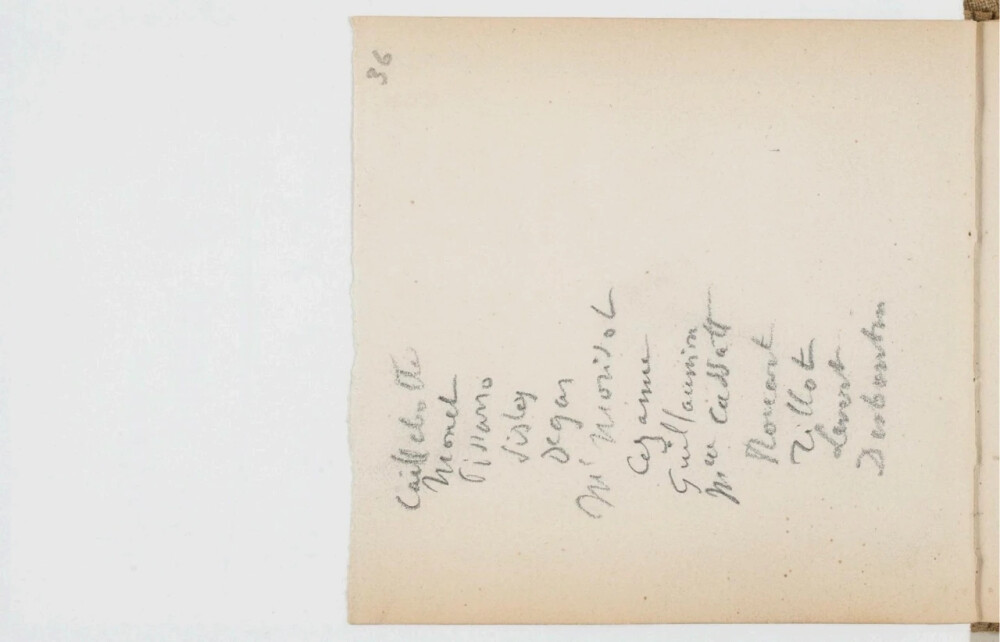 36
Caillebotte
Monet
Pissarro
Sisley
Degas
Me Morisot
Cezanne
Guillaumin
Me Cassatt
Rouart
Tillot
Levert
Desboutin